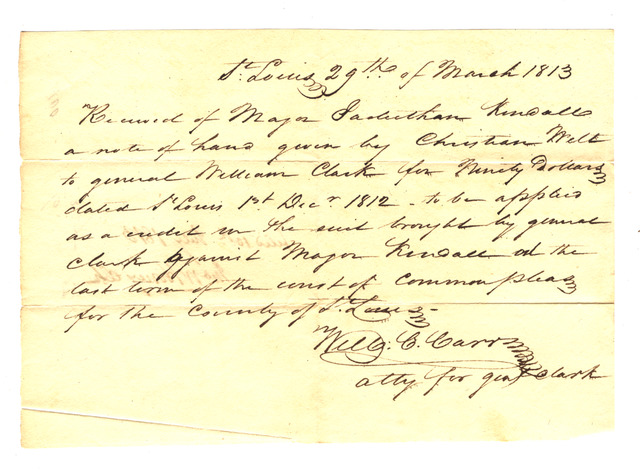 St Louis 29th of March 1813
Received of Major Kendall
a note of hand given by Christian Wilt
to general William Clark for Ninety Dollars
dated St Louis 1st Decr 1812 - to be applied
as a credit in the suit brought by general
Clark against Major Kendall at the
last term of the court of common pleas
for the county of St Louis -
Will. C. Carr
atty for genl Clark